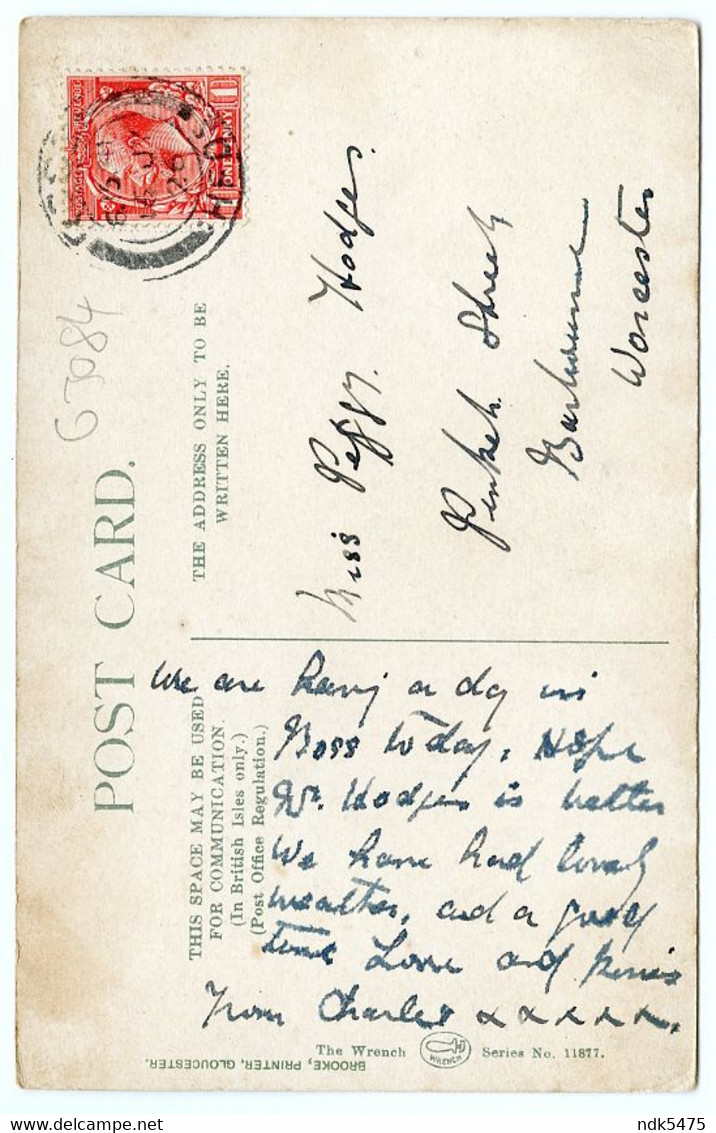 POST CARD.
THIS SPACE MAY BE USED
FOR COMMUNICATION.
(In British Isles only.)
(Post Office Regulation.)
THE ADDRESS ONLY TO BE
WRITTEN HERE.
POSTAGE REVENUE
ONE PENNY
63084
Miss Peggy. Hodges.
Street
Barbourne
Worcester
We are having a day in
Ross today, Hope
Mr. Hodges is better
We have had lovely
weather, and a good
time Love and kisses
From Charles x x x x x x.
The Wrench WRENCH Series No. 11877.
BROOKE, PRINTER, GLOUCESTER.
ndk5475